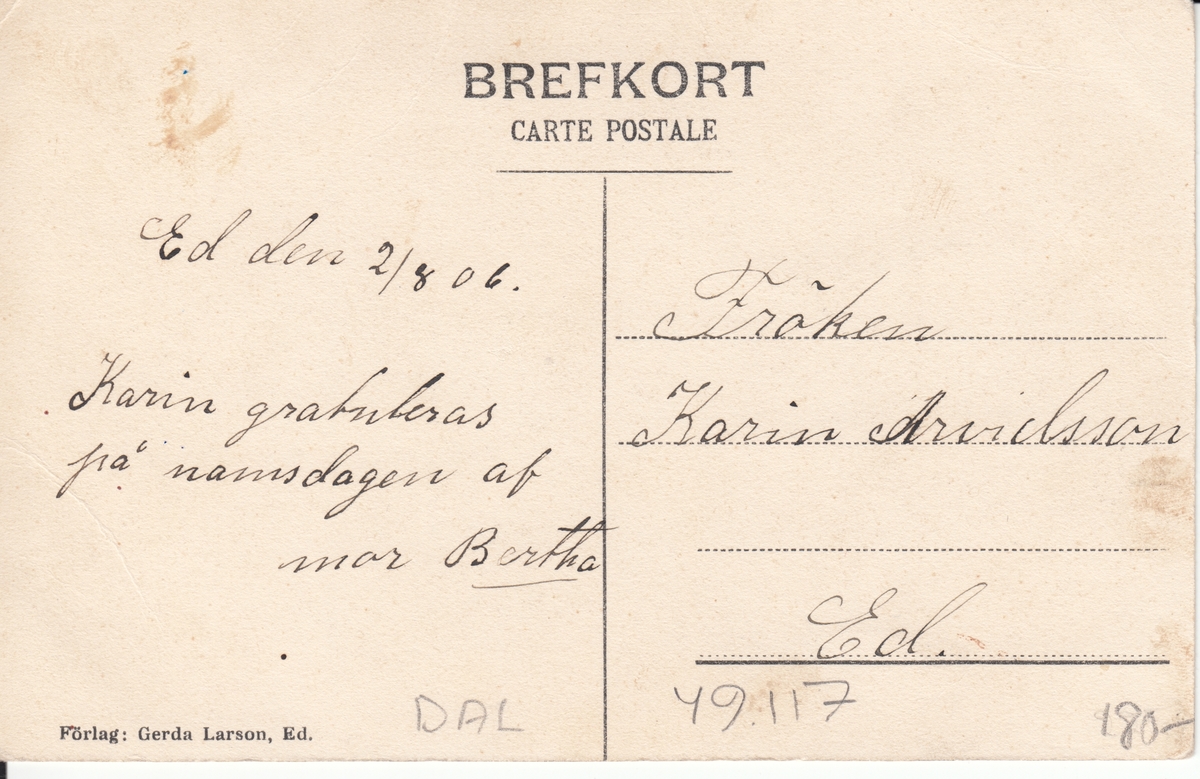 BREFKORT
CARTE POSTALE
Ed den 2/8 06.
Karin gratuleras
på namsdagen af
mor Bertha
Fröken
Karin Arvidsson
Ed.
Förlag: Gerda Larson, Ed.
DAL
49.117
180-